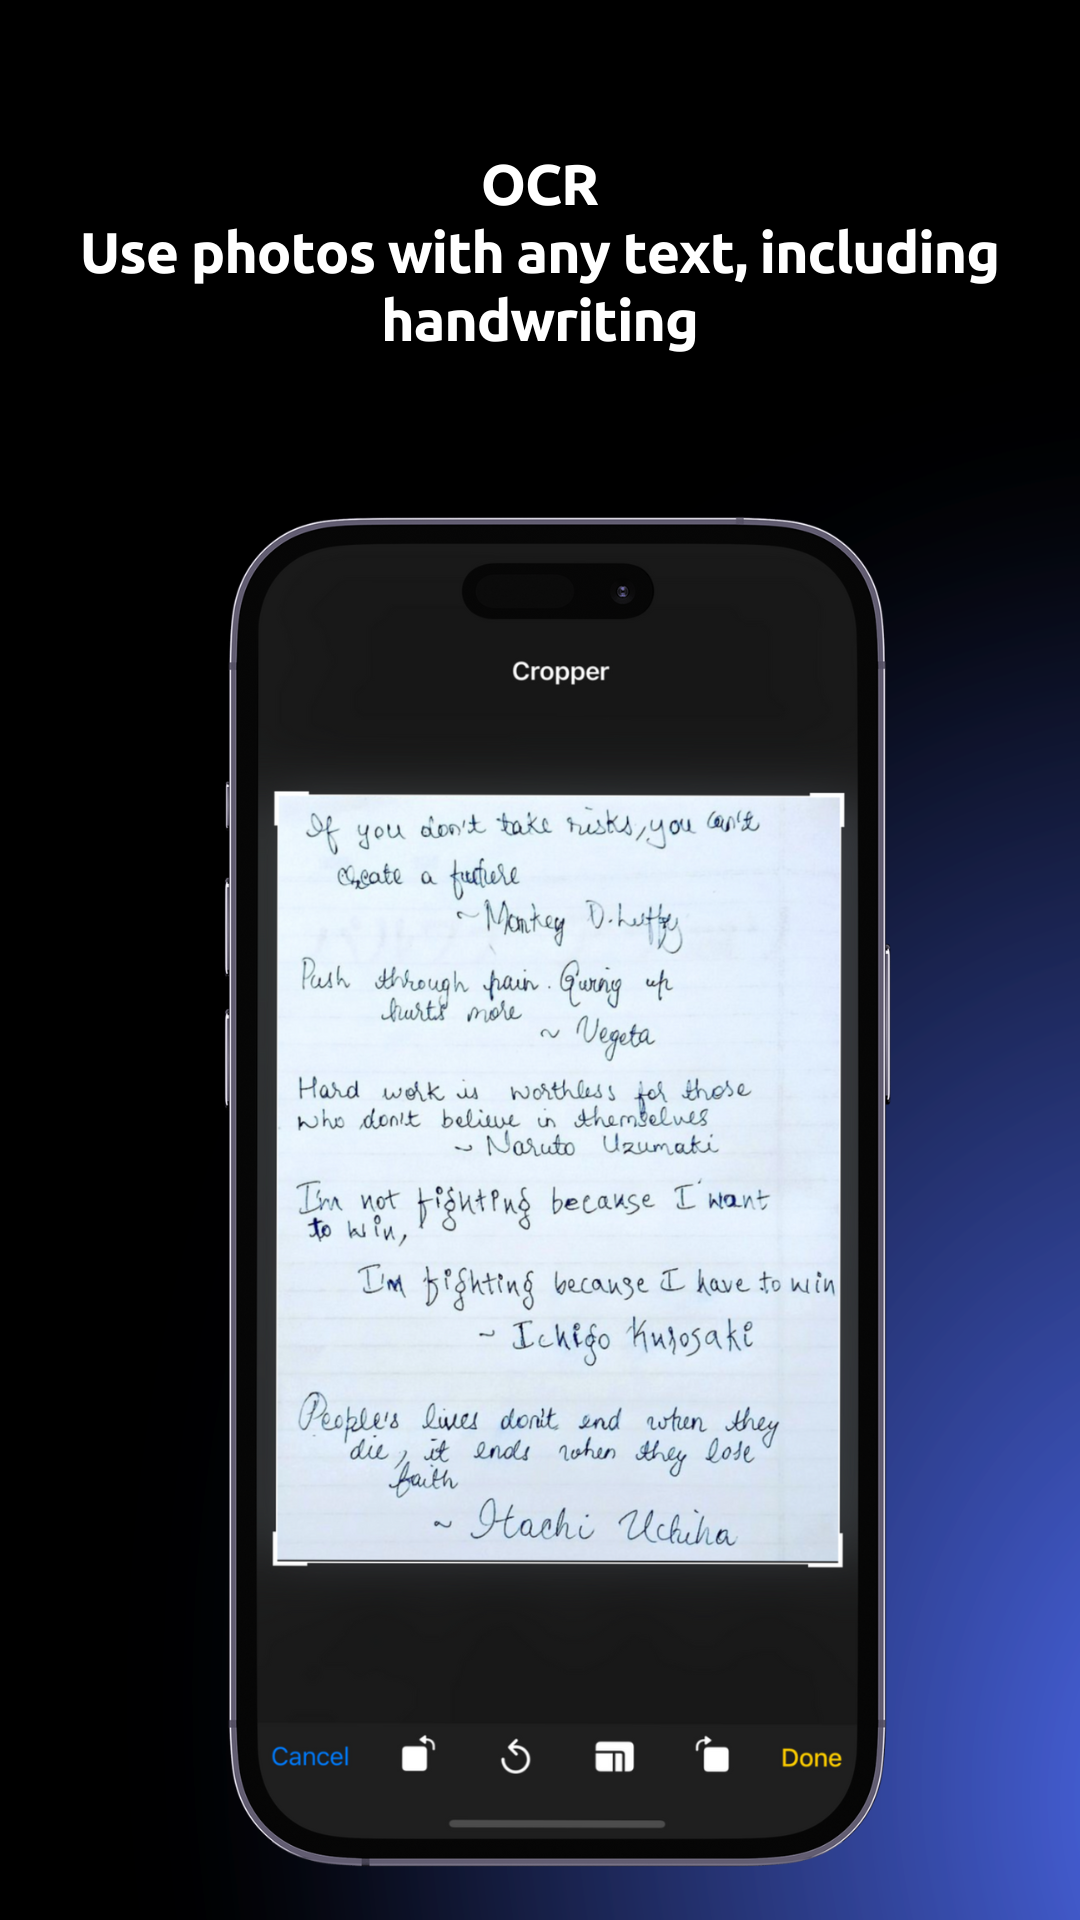 OCR
Use photos with any text, including
handwriting
Cropper
If you don't take risks, you can't
create a future
~ Monkey D. Luffy
Push through pain. Guring up
hurts more
~ Vegeta
Hard work is worthless for those
who don't believe in themselves
~ Naruto Uzumaki
I'm not fighting because I want
to win,
I'm fighting because I have to win
~ Ichigo Kurosaki
People's lives don't end when they
die, it ends when they lose
faith
~ Itachi Uchiha
Cancel
Done